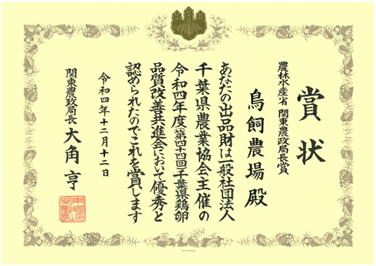 賞状
農林水産省 関東農政局長賞
鳥飼農場 殿
あなたの出品財は一般社団法人
千葉県農業協会主催の
令和四年度(第四十四回)千葉県鶏卵
品質改善共進会において優秀と
認められたのでこれを賞します
令和四年十二月十二日
関東農政局長 大角 亨